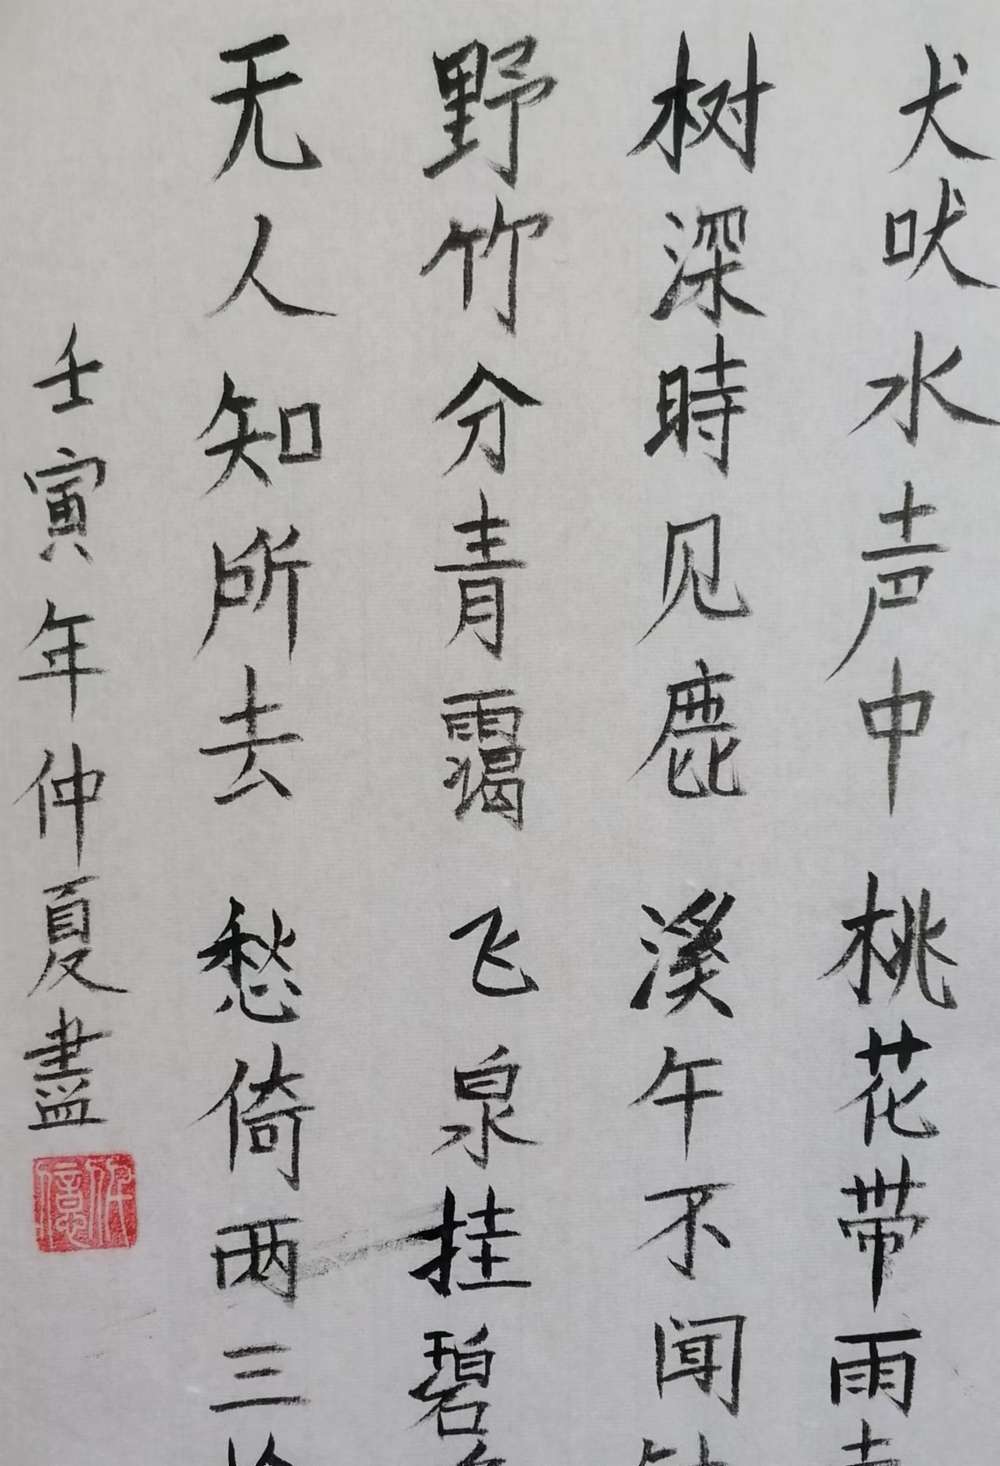 犬吠水声中 桃花带雨
树深時见鹿 溪午不闻
野竹分青霭 飞泉挂碧
无人知所去 愁倚两三
壬寅年仲夏盡